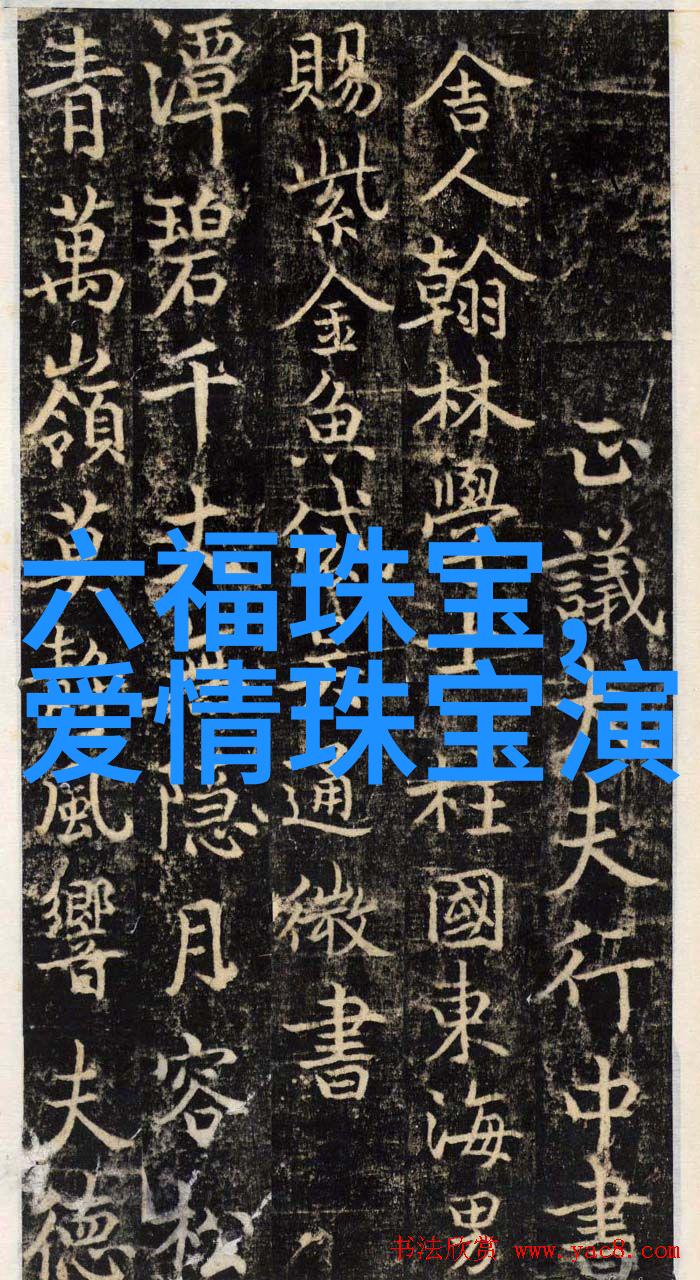 正議大夫行中書
舍人翰林學柱國東海男
賜紫金魚袋通微書
潭碧千丈隱月容松
青萬嶺莫靜風響夫德
六福珠宝,
爱情珠宝演
书法欣赏 www.yac8.com